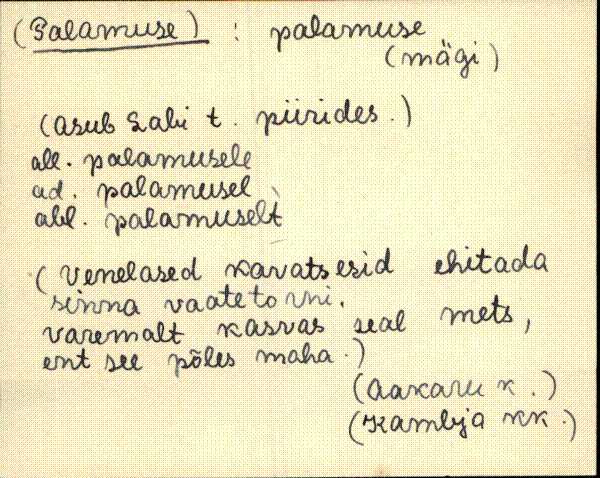 (Palamuse) : palamuse
(mägi)
(asub Labi t. piirides.)
all. palamusele
ad. palamusel
abl. palamuselt
(Venelased kavatsesid ehitada
sinna vaatetorni.
varemalt kasvas seal mets,
ent see põles maha.)
(Aakaru k.)
(Kambja kk.)